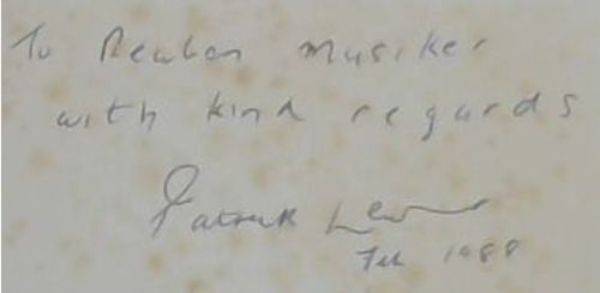 To Reuben Musiker
with kind regards
Patrick Lew
Feb 1988